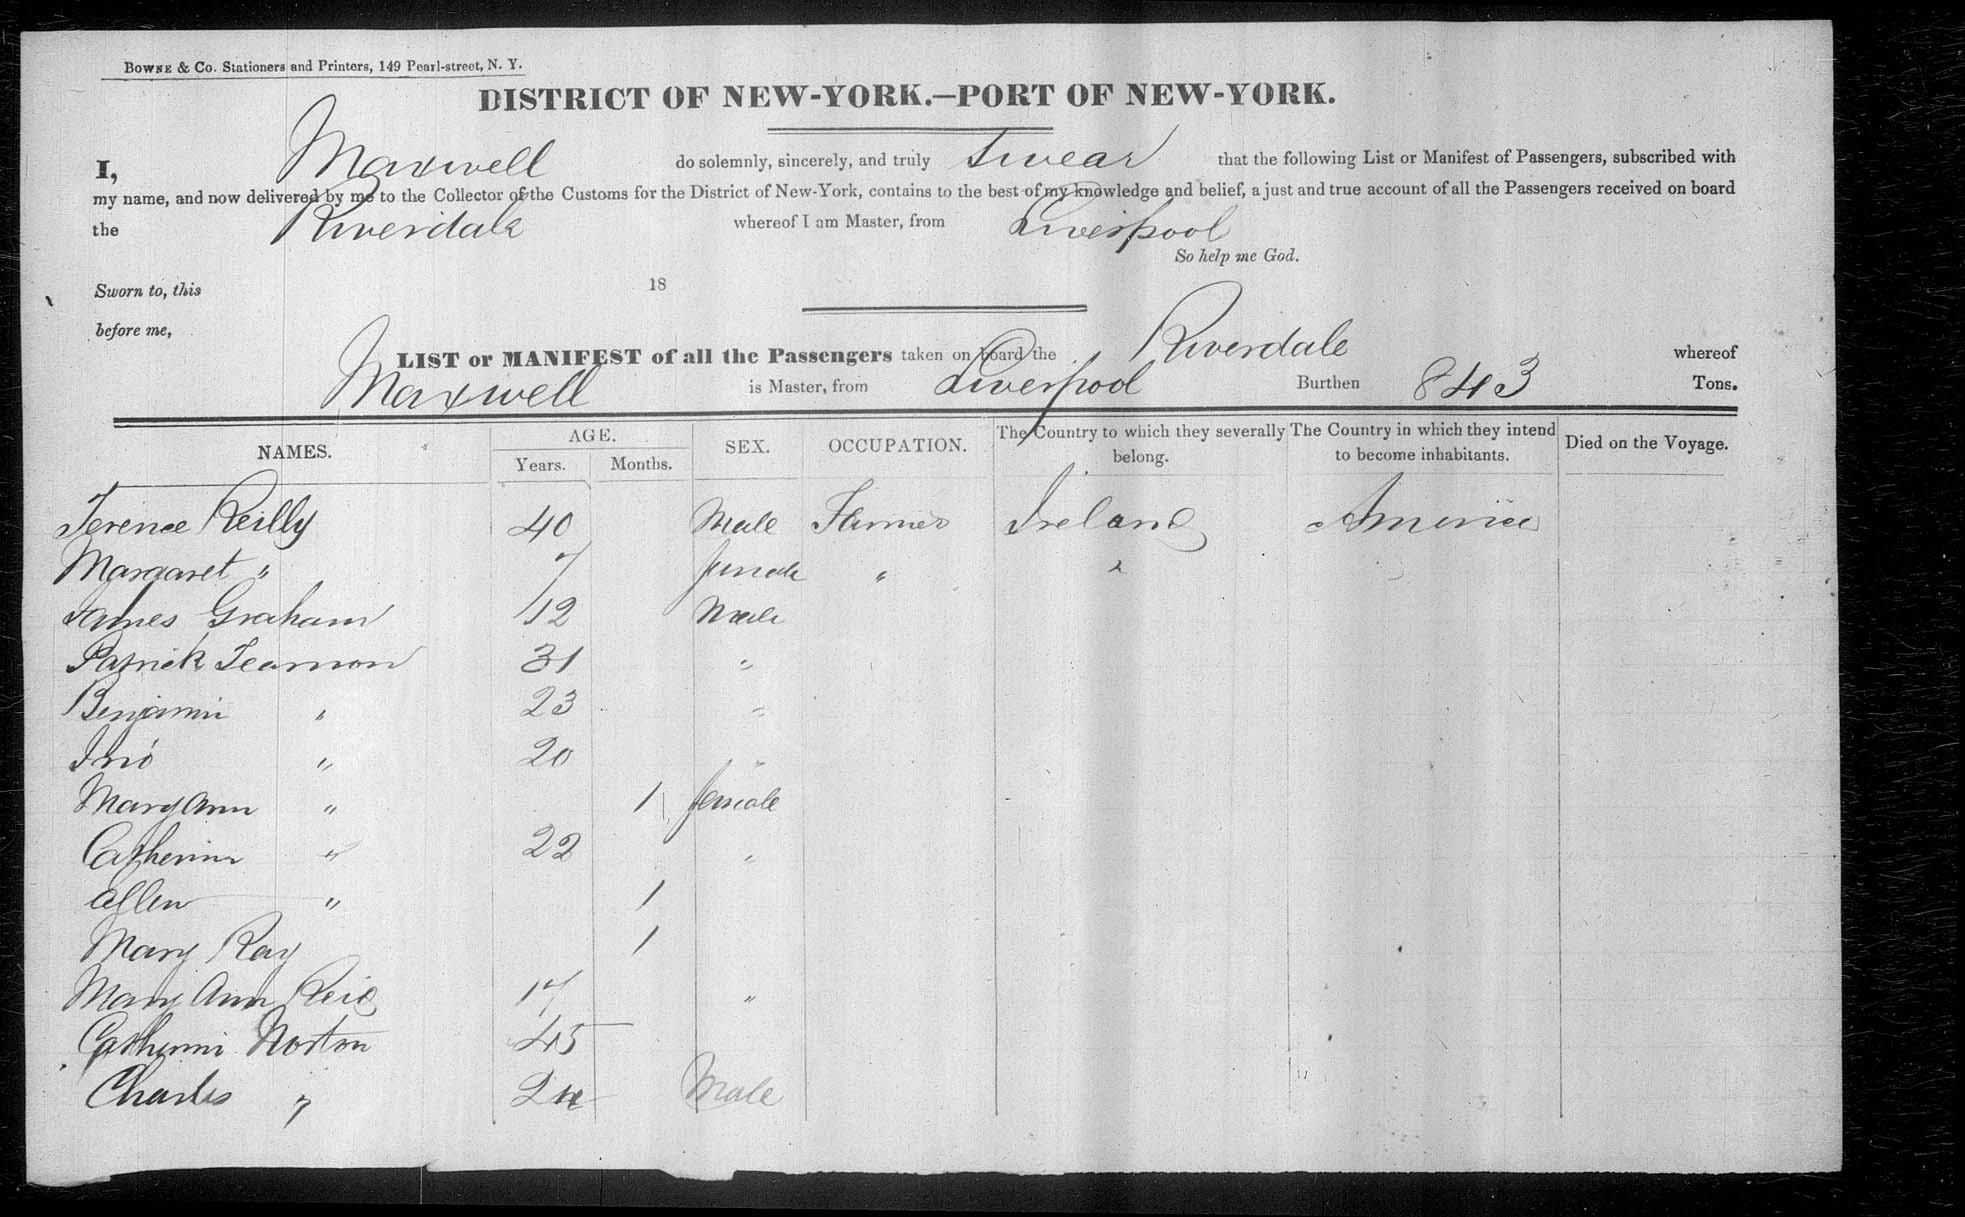 BOWNE & Co. Stationers and Printers, 149 Pearl-street, N. Y.
DISTRICT OF NEW-YORK.—PORT OF NEW-YORK.
I, Maxwell do solemnly, sincerely, and truly Swear that the following List or Manifest of Passengers, subscribed with
my name, and now delivered by me to the Collector of the Customs for the District of New-York, contains to the best of my knowledge and belief, a just and true account of all the Passengers received on board
the Riverdale whereof I am Master, from Liverpool
So help me God.
Sworn to, this 18
before me,
LIST or MANIFEST of all the Passengers taken on board the Riverdale whereof
Maxwell is Master, from Liverpool Burthen 843 Tons.
NAMES. AGE. Years. Months. SEX. OCCUPATION. The Country to which they severally belong. The Country in which they intend to become inhabitants. Died on the Voyage.
Terence Reilly 40 Male Farmer Ireland America
Margaret " 7 female " "
James Graham 12 Male
Patrick 31 "
Benjamin " 23 "
Jno " 20 "
Mary Ann " 1 female
Catherine " 22 "
Allen " 1
Mary Ray 1
Mary Ann Reid 17 "
Catherine Norton 45
Charles " 24 Male